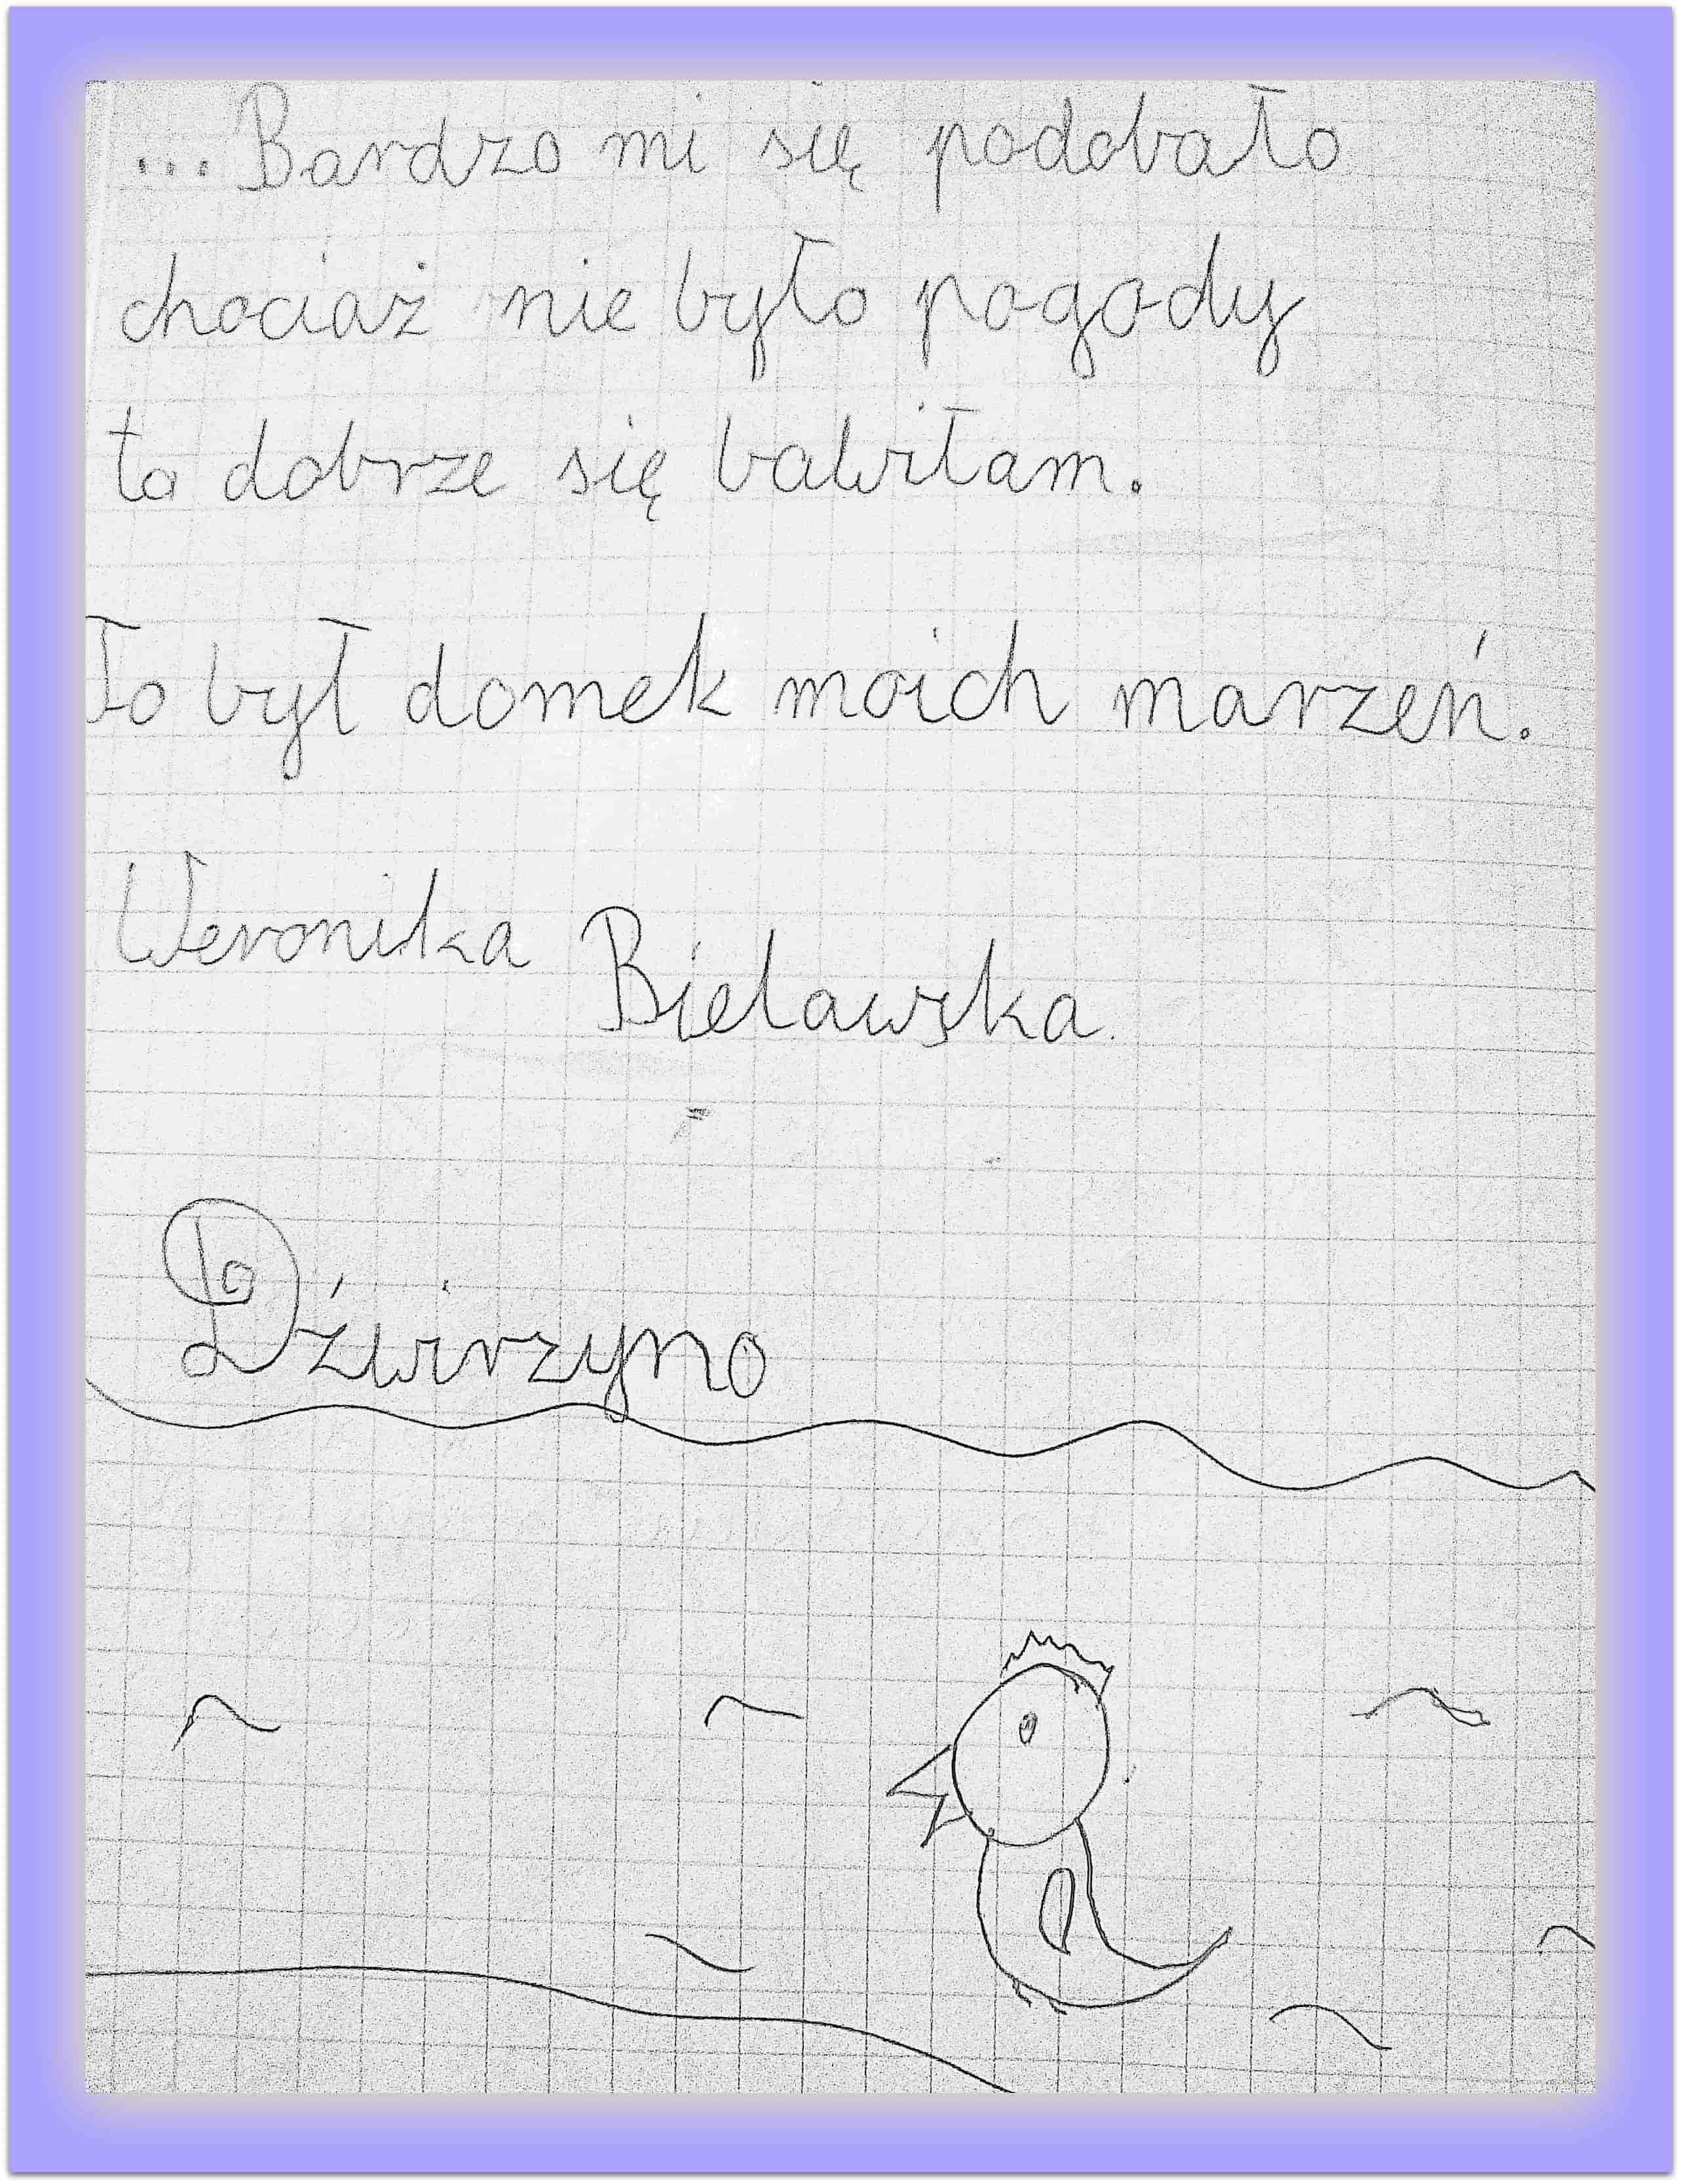 ...Bardzo mi się podobało
chociaż nie było pogody
to dobrze się bawiłam.
To był domek moich marzeń.
Weronika Bielawska.
Dźwirzyno